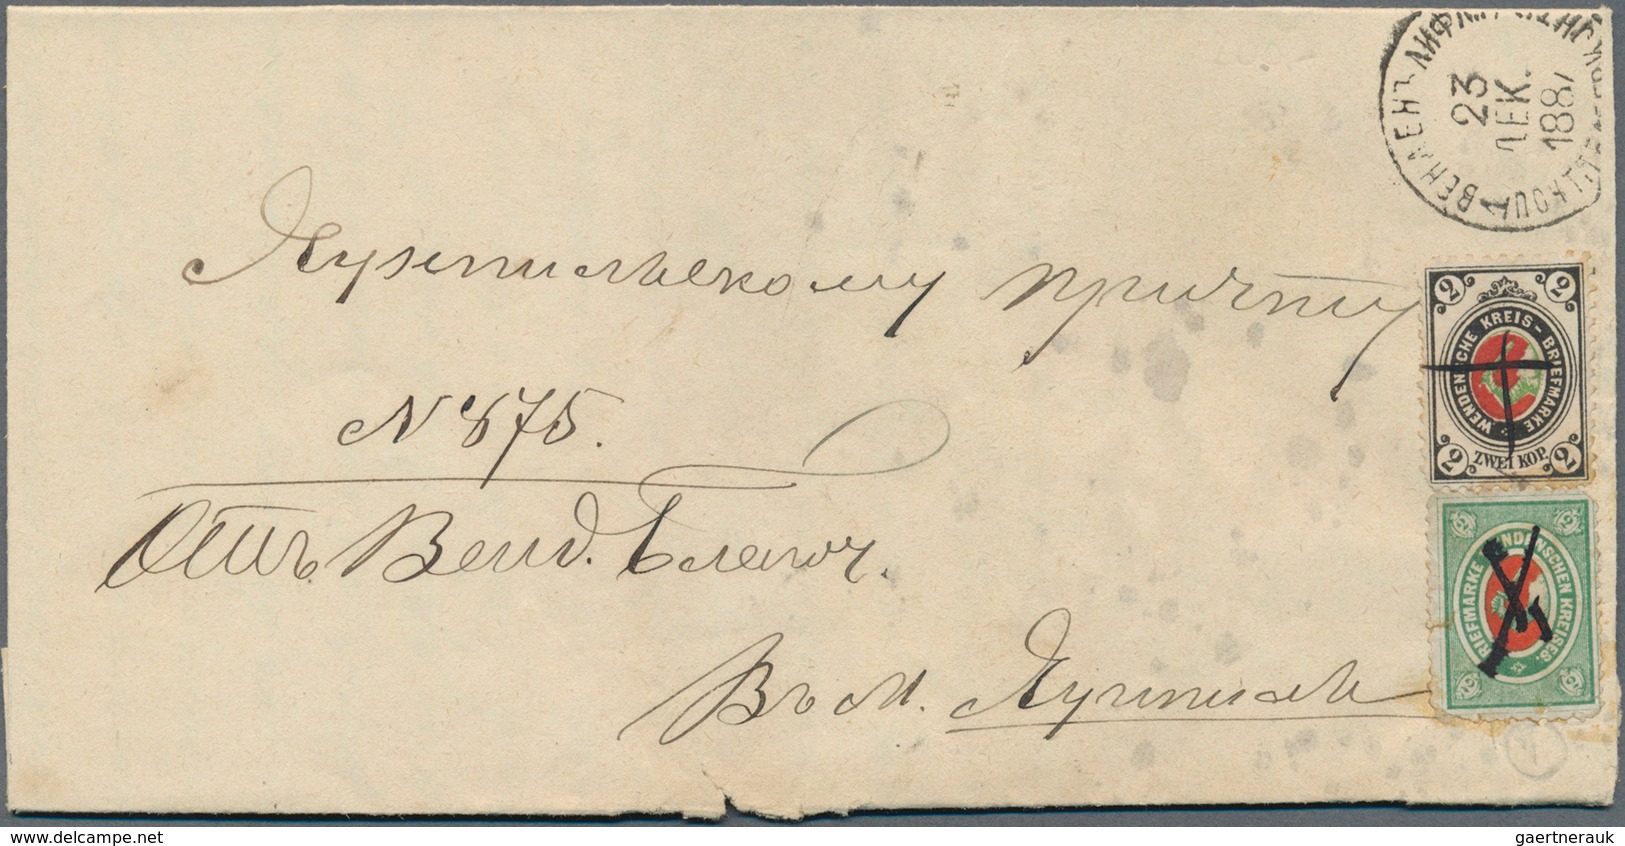 ВЕНДЕНЪ ЛИФЛ
23
ДЕК.
188
Кузтильскому причту
N 875.
Отъ Венд. Благоч.
Въ м.
2 2
WENDENSCHE KREIS-BRIEFMARKE
2 ZWEI KOP. 2
2 2
BRIEFMARKE WENDENSCHEN KREISES.
2 2
delcampe.net
gaertnerauk